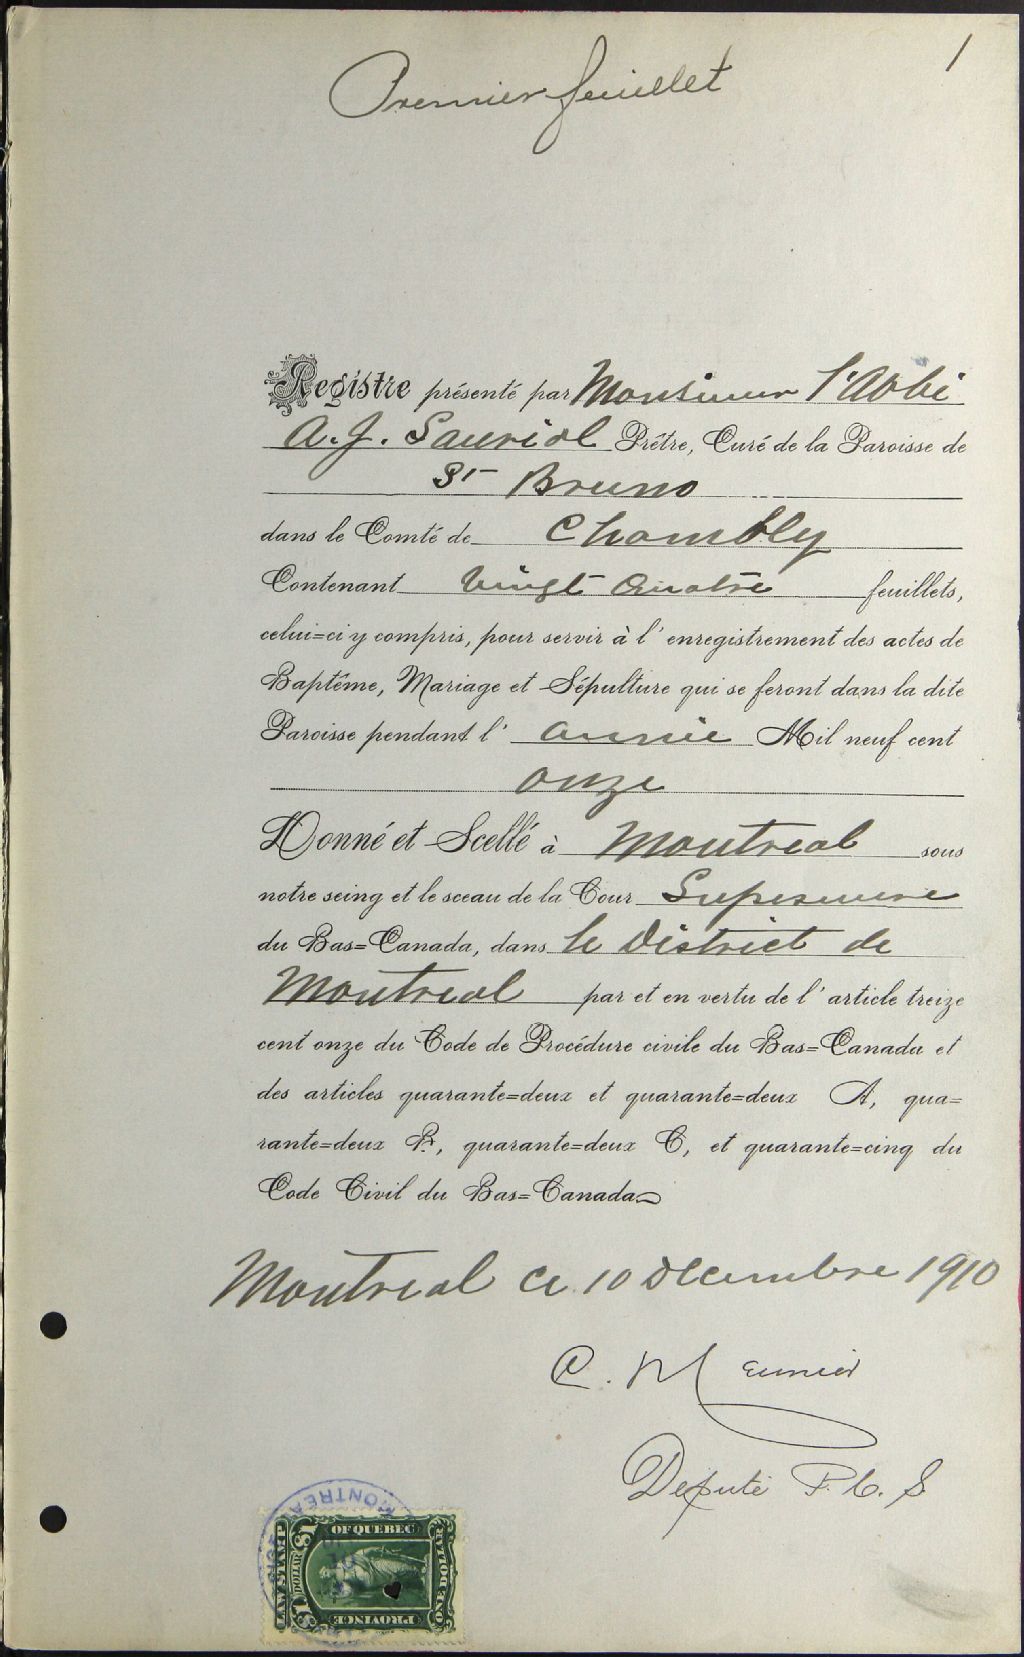 1
Premier feuillet
Registre présenté par Monsieur l'Abbé
A. J. Sauriol Prêtre, Curé de la Paroisse de
St Bruno
dans le Comté de Chambly
Contenant Vingt Quatre feuillets,
celui=ci y compris, pour servir à l'enregistrement des actes de
Baptême, Mariage et Sépulture qui se feront dans la dite
Paroisse pendant l'année Mil neuf cent
onze
Donné et Scellé à Montreal sous
notre seing et le sceau de la Cour Superieure
du Bas=Canada, dans le District de
Montreal par et en vertu de l'article treize
cent onze du Code de Procédure civile du Bas=Canada et
des articles quarante=deux et quarante=deux A, qua=
rante=deux B, quarante=deux C, et quarante=cinq du
Code Civil du Bas=Canada
Montreal ce 10 Decembre 1910
C. Meunier
Député P. C. S
MONTREAL
LAW STAMP
OF QUEBEC
$1
DOLLAR
ONE DOLLAR
PROVINCE
$1